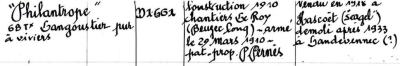 "Philantrope"
68Tx Langoustier pur
à viviers
DZ661
Construction 1910
chantiers Le Roy
(Beuzec Conq) - armé
le 29 mars 1910 -
pat. prop. P. Pernès
Vendu en 1926 à
Hascoët
démoli après 1933
à Landévennec (?)